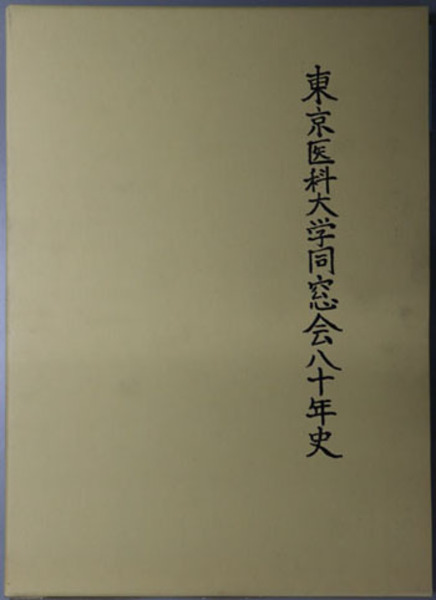 東京医科大学同窓会八十年史